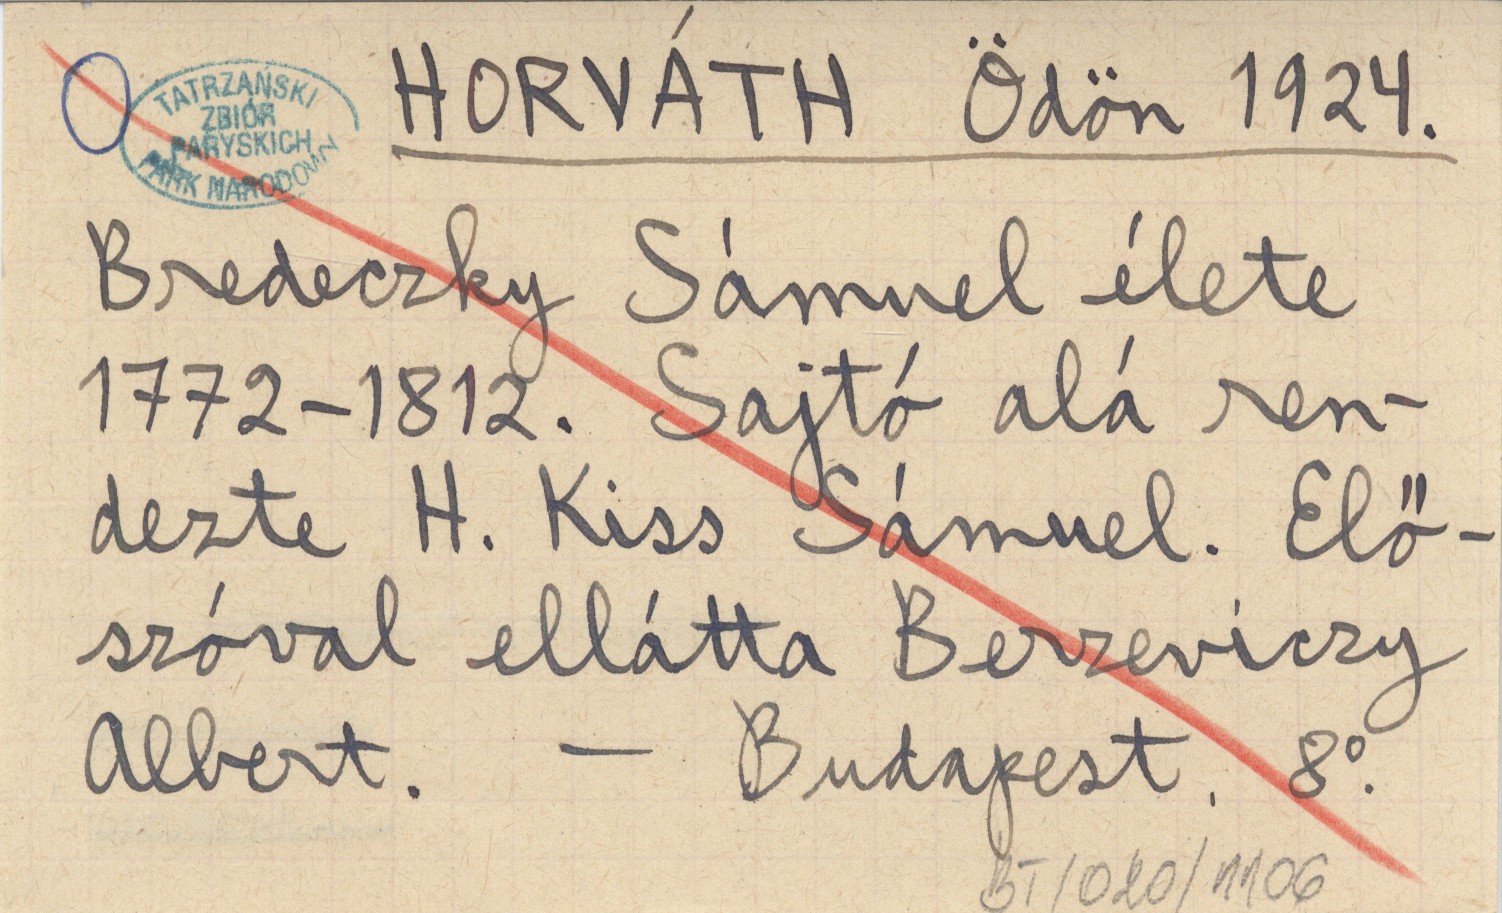 TATRZAŃSKI
ZBIÓR
PARYSKICH
PARK NARODOWY
HORVÁTH Ödön 1924.
Bredeczky Sámuel élete
1772-1812. Sajtó alá ren-
dezte H. Kiss Sámuel. Elő-
szóval ellátta Berzeviczy
Albert. — Budapest, 8°.
BT/020/1106